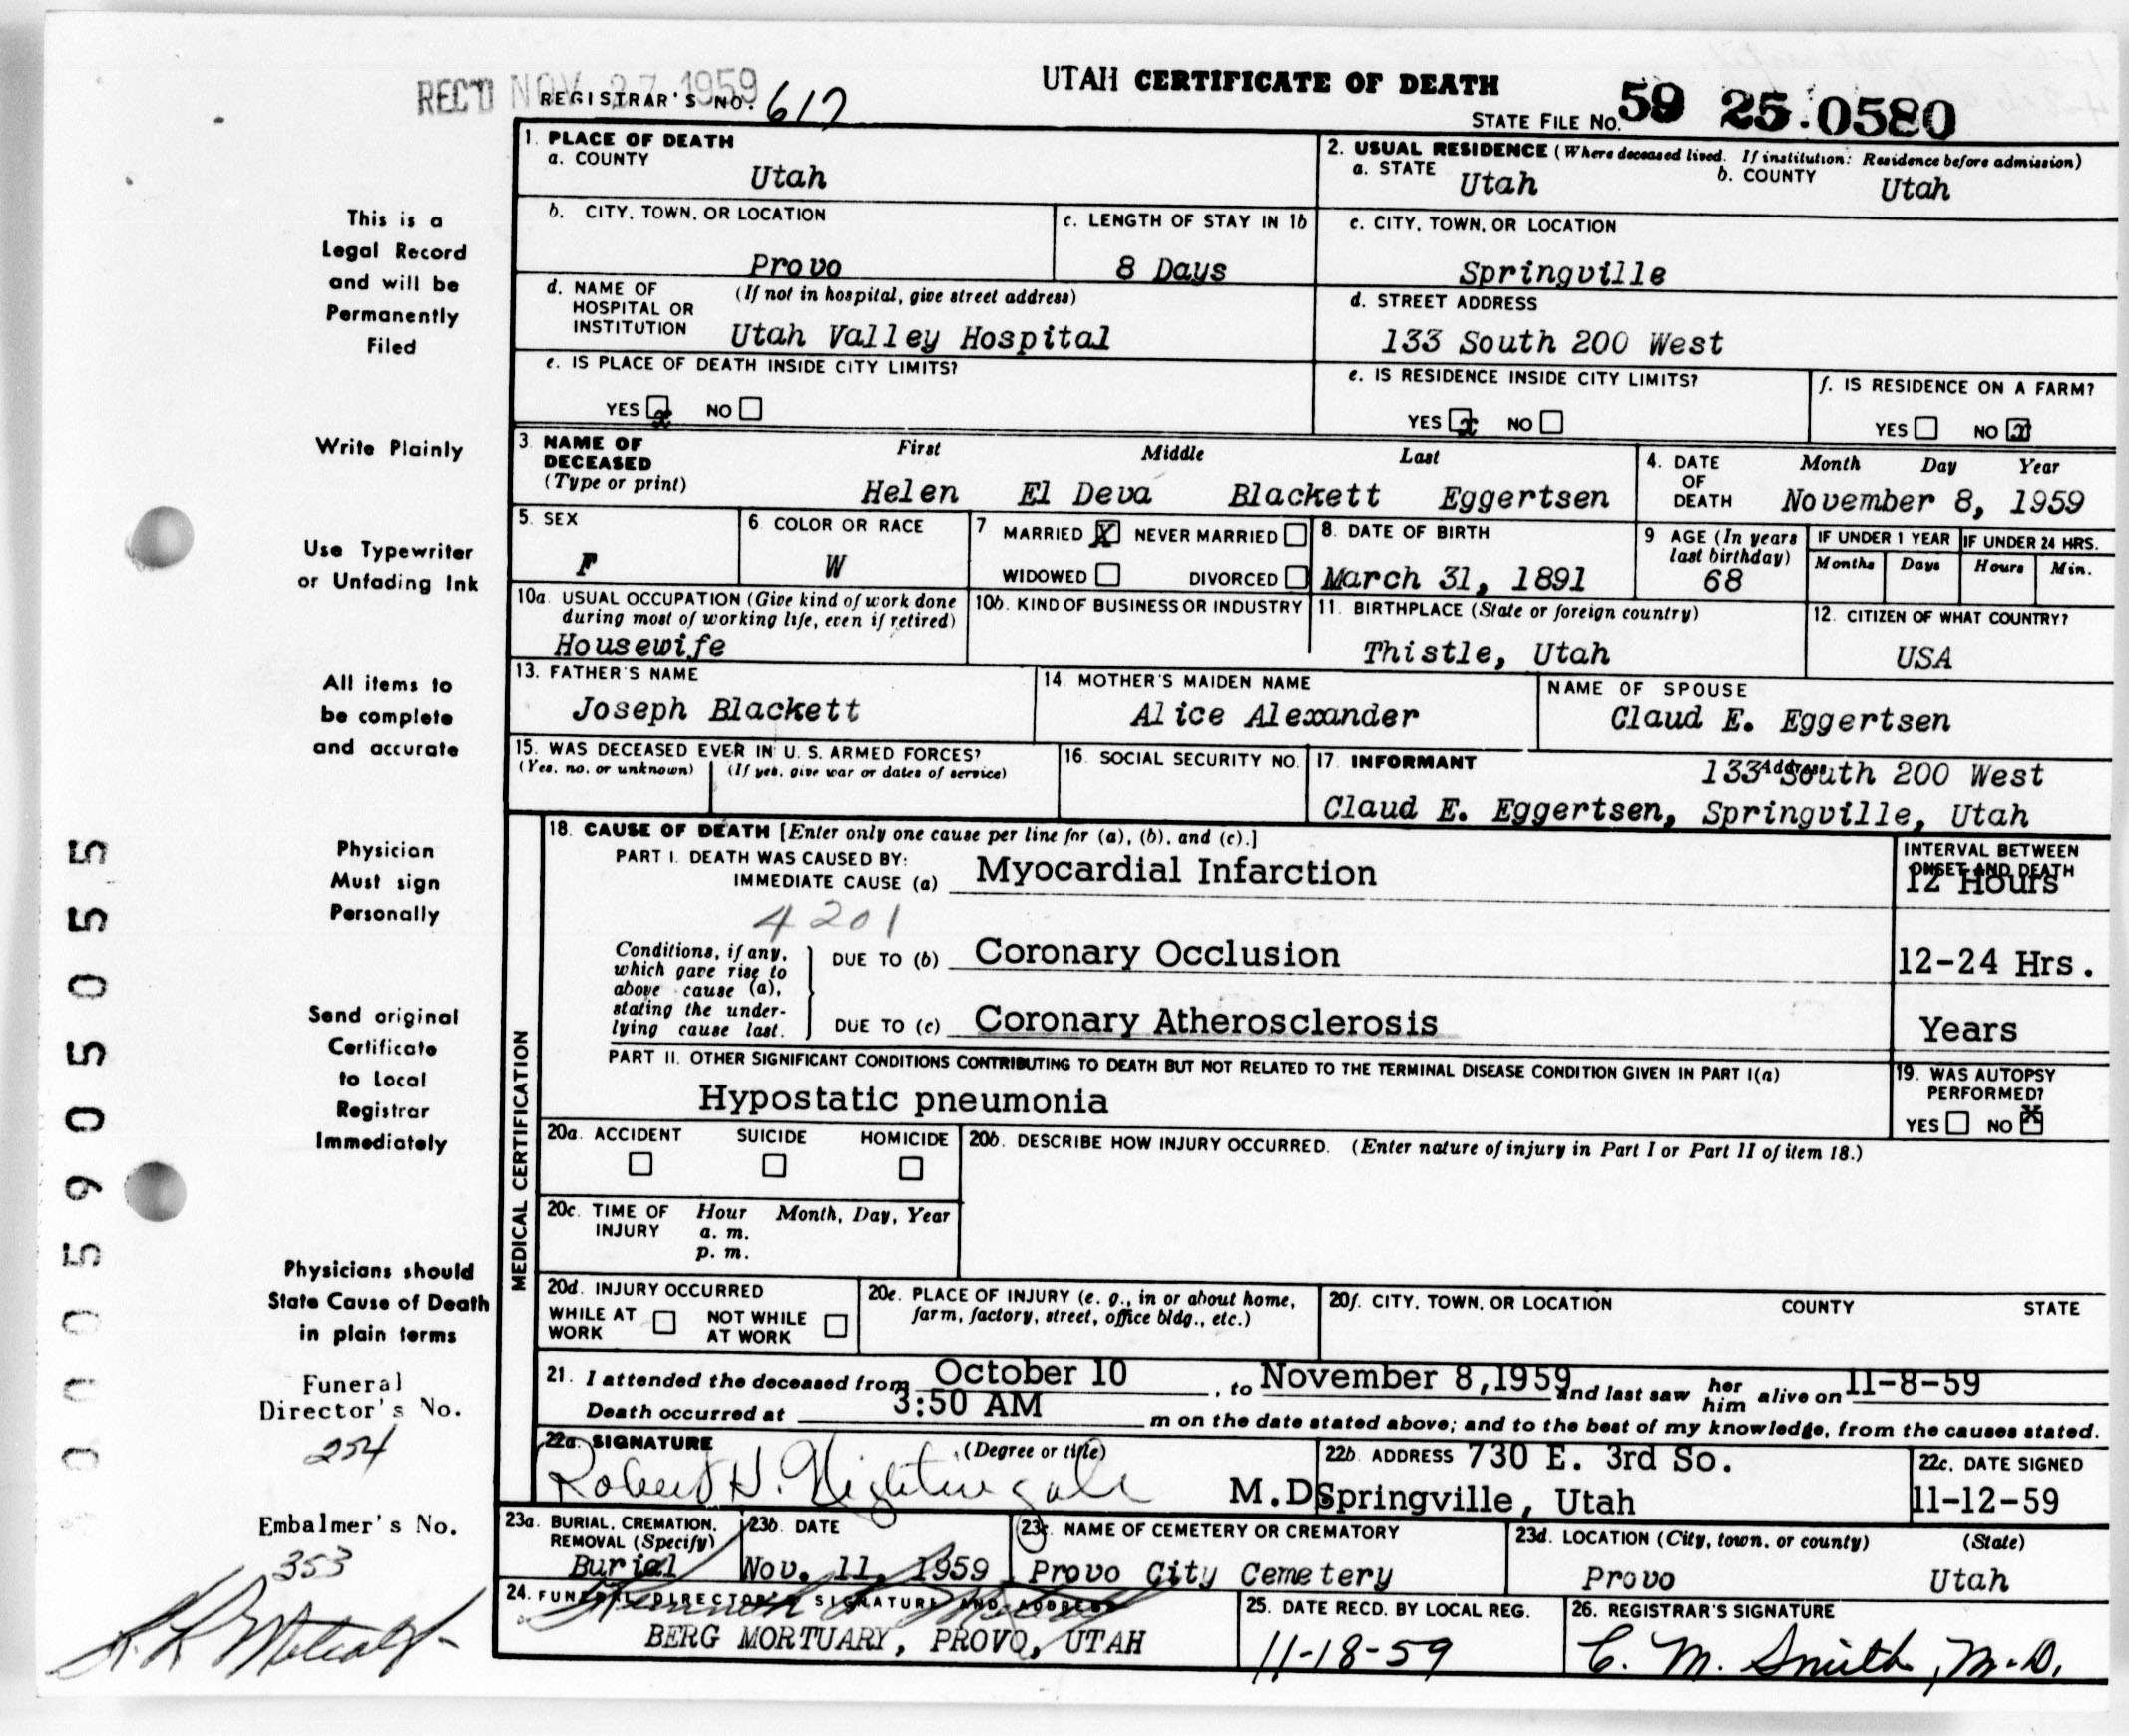 REC'D NOV 27 1959
UTAH CERTIFICATE OF DEATH
REGISTRAR'S NO. 617
STATE FILE NO. 59 25 0580
1. PLACE OF DEATH
a. COUNTY
Utah
2. USUAL RESIDENCE (Where deceased lived. If institution: Residence before admission)
a. STATE Utah b. COUNTY Utah
b. CITY, TOWN, OR LOCATION
Provo
c. LENGTH OF STAY IN 1b
8 Days
c. CITY, TOWN, OR LOCATION
Springville
d. NAME OF HOSPITAL OR INSTITUTION (If not in hospital, give street address)
Utah Valley Hospital
d. STREET ADDRESS
133 South 200 West
e. IS PLACE OF DEATH INSIDE CITY LIMITS?
YES x NO
e. IS RESIDENCE INSIDE CITY LIMITS?
YES x NO
f. IS RESIDENCE ON A FARM?
YES NO x
3. NAME OF DECEASED (Type or print)
First Middle Last
Helen El Deva Blackett Eggertsen
4. DATE OF DEATH
Month Day Year
November 8, 1959
5. SEX
F
6. COLOR OR RACE
W
7 MARRIED X NEVER MARRIED
WIDOWED DIVORCED
8. DATE OF BIRTH
March 31, 1891
9 AGE (In years last birthday)
68
IF UNDER 1 YEAR
Months Days
IF UNDER 24 HRS.
Hours Min.
10a. USUAL OCCUPATION (Give kind of work done during most of working life, even if retired)
Housewife
10b. KIND OF BUSINESS OR INDUSTRY
11. BIRTHPLACE (State or foreign country)
Thistle, Utah
12. CITIZEN OF WHAT COUNTRY?
USA
13. FATHER'S NAME
Joseph Blackett
14. MOTHER'S MAIDEN NAME
Alice Alexander
NAME OF SPOUSE
Claud E. Eggertsen
15. WAS DECEASED EVER IN U. S. ARMED FORCES?
(Yes, no, or unknown) (If yes, give war or dates of service)
16. SOCIAL SECURITY NO.
17. INFORMANT Address
133 South 200 West
Claud E. Eggertsen, Springville, Utah
MEDICAL CERTIFICATION
18. CAUSE OF DEATH [Enter only one cause per line for (a), (b), and (c).]
PART I. DEATH WAS CAUSED BY:
IMMEDIATE CAUSE (a) Myocardial Infarction
INTERVAL BETWEEN ONSET AND DEATH
12 Hours
4201
Conditions, if any, which gave rise to above cause (a), stating the underlying cause last.
DUE TO (b) Coronary Occlusion
12-24 Hrs.
DUE TO (c) Coronary Atherosclerosis
Years
PART II. OTHER SIGNIFICANT CONDITIONS CONTRIBUTING TO DEATH BUT NOT RELATED TO THE TERMINAL DISEASE CONDITION GIVEN IN PART I(a)
Hypostatic pneumonia
19. WAS AUTOPSY PERFORMED?
YES NO X
20a. ACCIDENT SUICIDE HOMICIDE
20b. DESCRIBE HOW INJURY OCCURRED. (Enter nature of injury in Part I or Part II of item 18.)
20c. TIME OF INJURY Hour Month, Day, Year
a. m.
p. m.
20d. INJURY OCCURRED
WHILE AT WORK NOT WHILE AT WORK
20e. PLACE OF INJURY (e. g., in or about home, farm, factory, street, office bldg., etc.)
20f. CITY, TOWN, OR LOCATION COUNTY STATE
21. I attended the deceased from October 10, to November 8, 1959 and last saw her him alive on 11-8-59
Death occurred at 3:50 AM m on the date stated above; and to the best of my knowledge, from the causes stated.
22a. SIGNATURE (Degree or title)
Robert H. Nightingale M.D
22b. ADDRESS 730 E. 3rd So.
Springville, Utah
22c. DATE SIGNED
11-12-59
23a. BURIAL, CREMATION, REMOVAL (Specify)
Burial
23b. DATE
Nov. 11, 1959
23c. NAME OF CEMETERY OR CREMATORY
Provo City Cemetery
23d. LOCATION (City, town, or county) (State)
Provo Utah
24. FUNERAL DIRECTOR'S SIGNATURE AND ADDRESS
BERG MORTUARY, PROVO, UTAH
25. DATE RECD. BY LOCAL REG.
11-18-59
26. REGISTRAR'S SIGNATURE
C. M. Smith, M.D.
This is a
Legal Record
and will be
Permanently
Filed
Write Plainly
Use Typewriter
or Unfading Ink
All items to
be complete
and accurate
Physician
Must sign
Personally
Send original
Certificate
to Local
Registrar
Immediately
Physicians should
State Cause of Death
in plain terms
Funeral
Director's No.
254
Embalmer's No.
353
0005905055